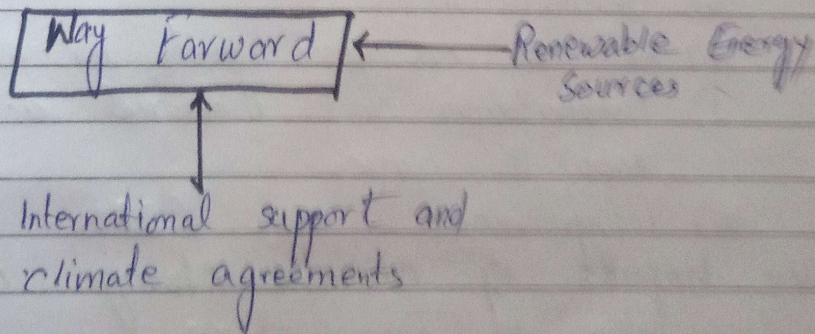 Way Farward
Renewable Energy
Sources
International support and
climate agreements